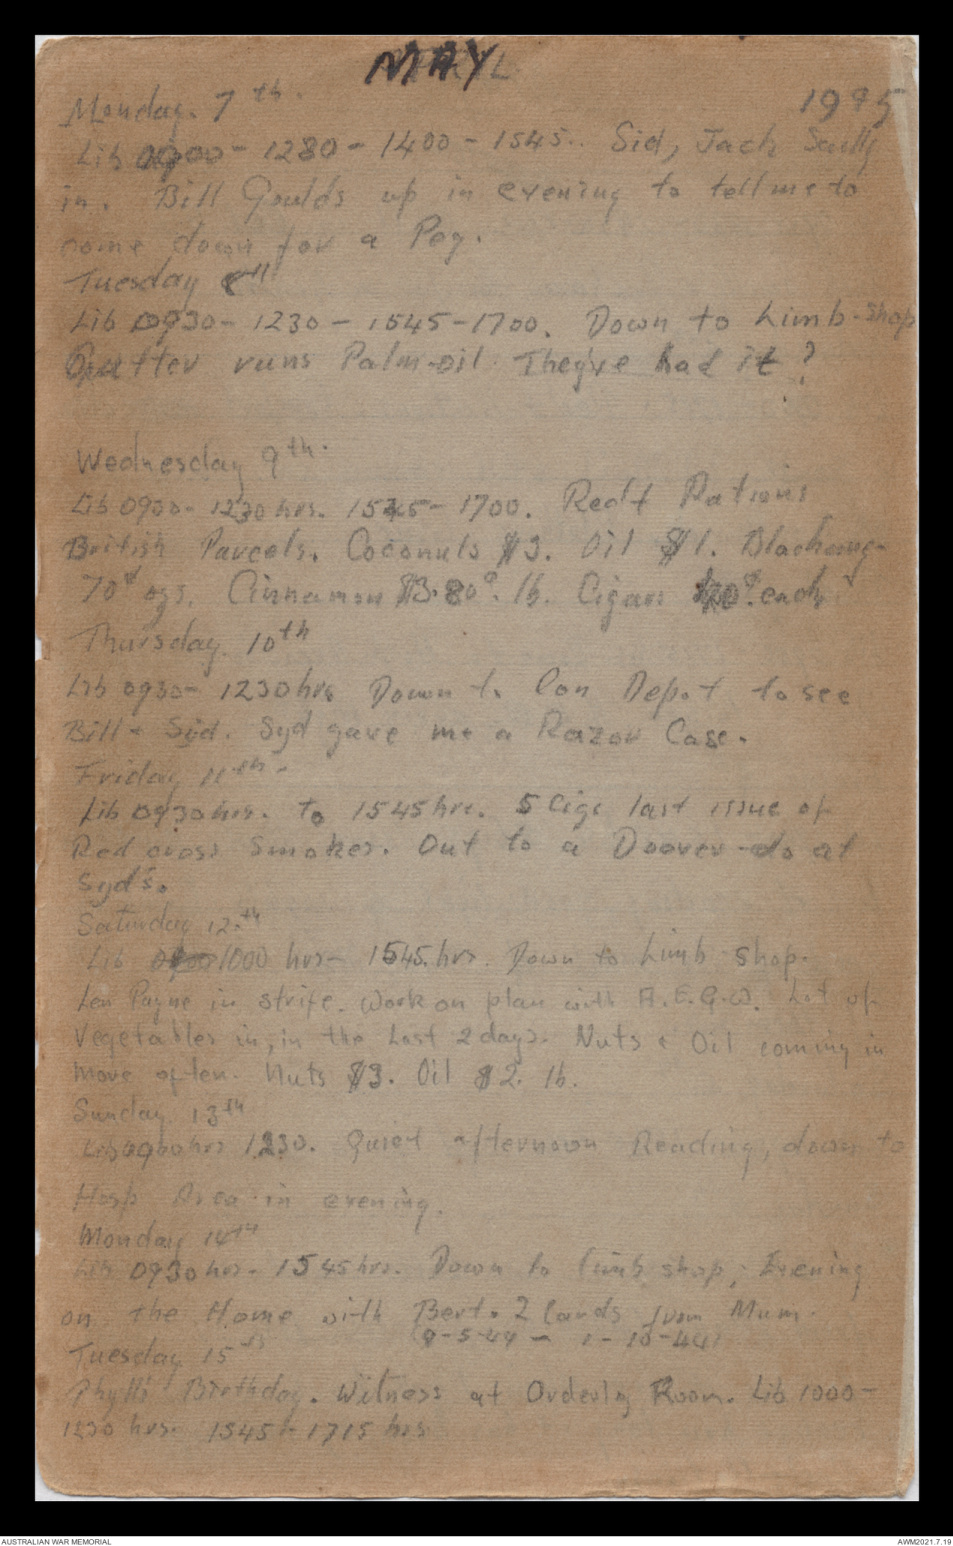 MAY
Monday. 7th. 1945
Lib 0900 - 1230 - 1400 - 1545.. Sid, Jack Scully
in. Bill Goulds up in evening to tell me to
come down for a Peg.
Tuesday 8th
Lib 0930 - 1230 - 1545 - 1700. Down to Limb-shop
runs Palm-oil. They've had it?
Wednesday 9th.
Lib 0900 - 1230 hrs. 1545 - 1700. Red + Rations
British Parcels. Coconuts $3. Oil $1. Blachang-
70¢ ozs. Cinnamon $3.80¢. lb. Cigars each
Thursday 10th
Lib 0930 - 1230 hrs Down to Con Depot to see
Bill + Syd. Syd gave me a Razor Case.
Friday 11th -
Lib 0930 hrs. to 1545 hrs. 5 Cigs last issue of
Red cross Smokes. Out to a Doover-do at
Syd's.
Saturday 12th
Lib 1000 hrs - 1545 hrs. Down to Limb shop.
Len Payne in strife. Work on plan with A.E.G.W. Lot of
Vegetables in, in the Last 2 days. Nuts & Oil coming in
more often. Nuts $3. Oil $2. lb.
Sunday 13th
Lib 0900 hrs 1230. Quiet afternoon Reading, down to
Hosp Area in evening.
Monday 14th
Lib 0930 hrs - 1545 hrs. Down to limb shop, Evening
on the Home with Bert. 2 Cards from Mum.
(9-5-44 - 1-10-44)
Tuesday 15th
Phyll's Birthday. Witness at Orderly Room. Lib 1000 -
1230 hrs. 1545 - 1715 hrs
AUSTRALIAN WAR MEMORIAL AWM2021.7.19